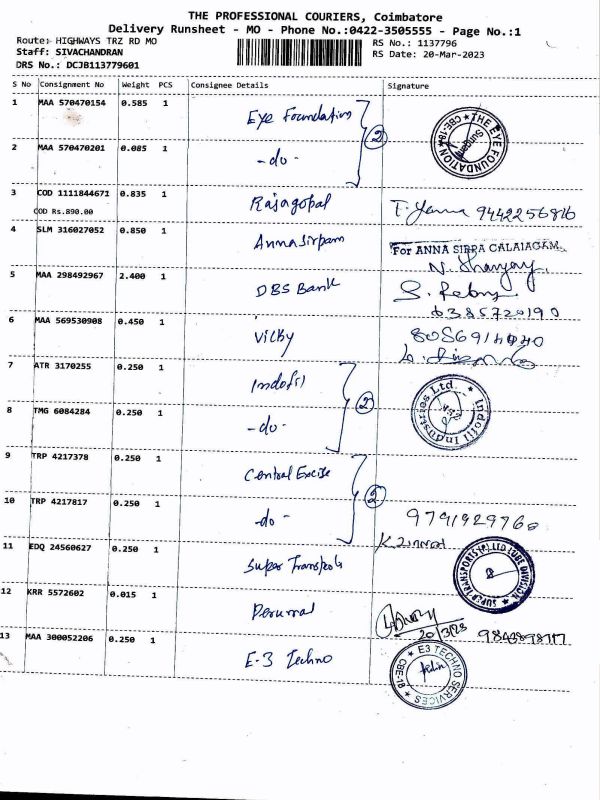 THE PROFESSIONAL COURIERS, Coimbatore
Delivery Runsheet - MO - Phone No.:0422-3505555 - Page No.:1
Route: HIGHWAYS TRZ RD MO
RS No.: 1137796
Staff: SIVACHANDRAN
RS Date: 20-Mar-2023
DRS No.: DCJB113779601
S No Consignment No Weight PCS Consignee Details Signature
1 MAA 570470154 0.585 1 Eye Foundation
2
THE EYE FOUNDATION CBE-18
2 MAA 570470201 0.085 1 -do-
3 COD 1111844671 0.835 1 Rajagopal 9442256816
COD Rs.890.00
4 SLM 316027052 0.850 1 Annasirpam
For ANNA SIRPA CALAIAGAM.
5 MAA 298492967 2.400 1 DBS Bank
6385720190
6 MAA 569530908 0.450 1 Vicky
7 ATR 3170255 0.250 1 Indofil
2
Indofil Industries Ltd.
8 TMG 6084284 0.250 1 -do-
9 TRP 4217378 0.250 1 Central Excise
2
10 TRP 4217817 0.250 1 -do- 9791929760
11 EDQ 24560627 0.250 1 Super Transports
SUPER TRANSPORTS (P) LTD LUBE DIVISION
12 KRR 5572602 0.015 1 Perumal
20/3/23
13 MAA 300052206 0.250 1 E-3 Techno
E3 TECHNO SERVICES CBE-18